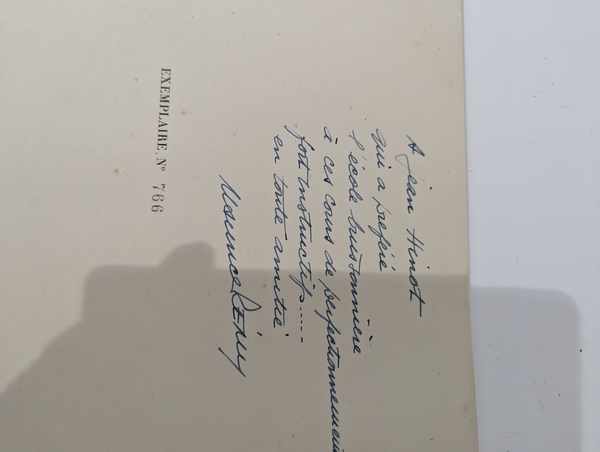 A jean Hinot
qui a préféré
l'école buissonnière
à ces cours de perfectionnement
fort instructifs.....
en toute amitié
Maurice Rémy
EXEMPLAIRE N° 766